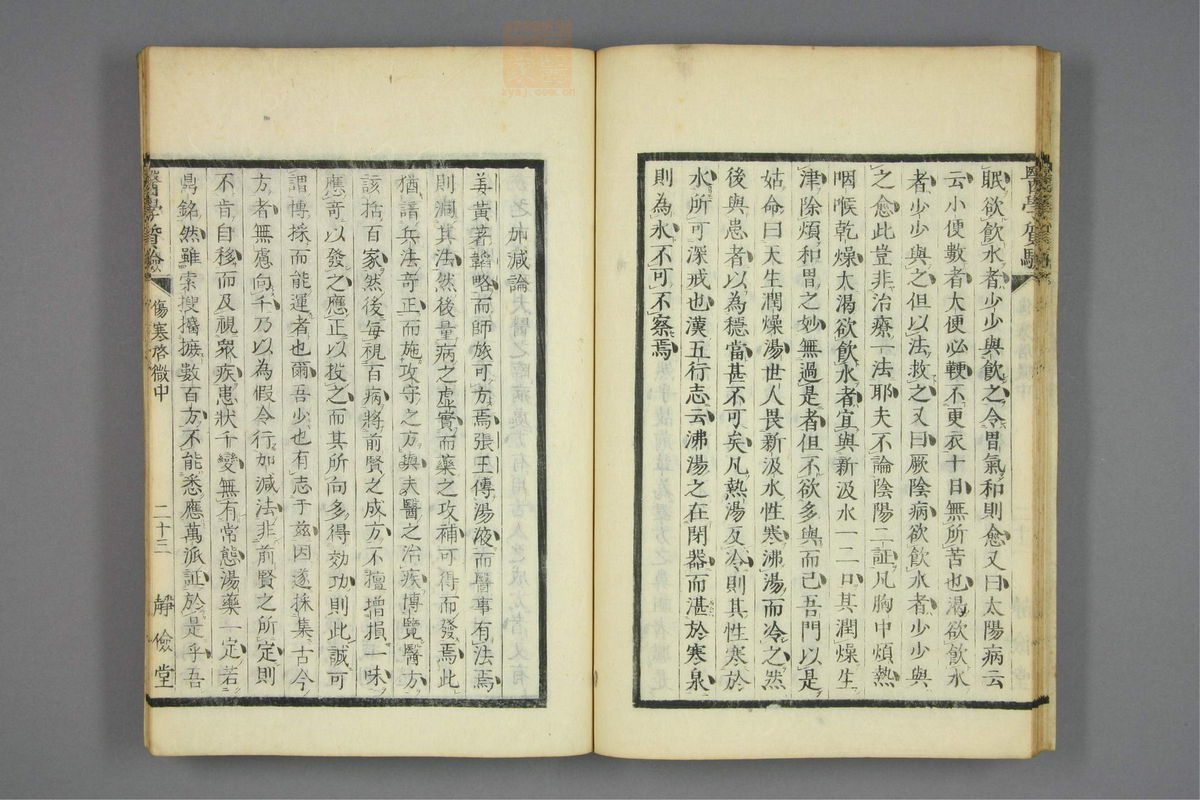 醫學質驗
眠欲飲水者少少與飲之令胃氣和則愈又曰太陽病云
云小便數者大便必鞕不更衣十日無所苦也渴欲飲水
者少少與之但以法救之又曰厥陰病欲飲水者少少與
之愈此豈非治療一法耶夫不論陰陽二証凡胸中煩熱
咽喉乾燥太渴欲飲水者宜與新汲水一二口其潤燥生
津除煩和胃之妙無過是者但不欲多與而已吾門以是
姑命曰天生潤燥湯世人畏新汲水性寒沸湯而冷之然
後與患者以為穩當甚不可矣凡熱湯反冷則其性寒於
水所可深戒也漢五行志云沸湯之在閉器而湛於寒泉
則為氷不可不察焉
加減論
姜黃著韜略而師旅可方焉張王傳湯液而醫事有法焉
則淍其法然後量病之虛實而藥之攻補可得而發焉此
猶諳兵法奇正而施攻守之方與夫醫之治疾博覽醫方
該括百家然後每視百病將前賢之成方不擅增損一味
應奇以發之應正以投之而其所向多得効功則此誠可
謂博採而能運者也爾吾少也有志于茲因遂採集古今
方者無慮向千乃以為假令行加減法非前賢之所定則
不肯自移而及視衆疾患狀千變無有常態湯藥一定若
鼎銘然雖索搜攟摭數百方不能悉應萬派証於是乎吾
醫學質驗 傷寒啓微中 二十三 靜儉堂
zysj.com.cn